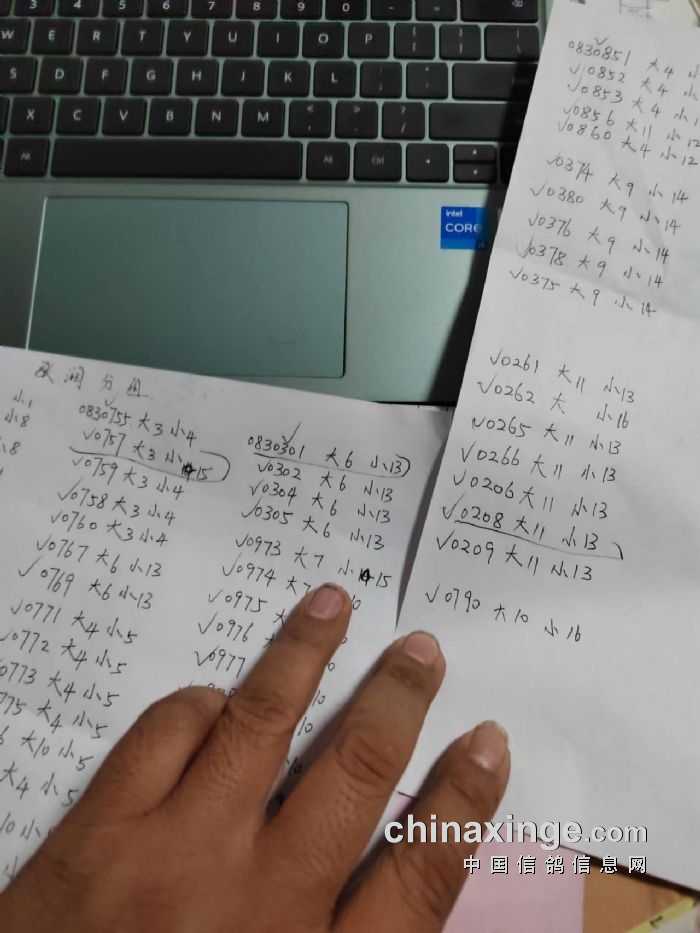 3 4 5 6 7 8 9 0
W E R T Y U I O P
S D F G H J K L
X C V B N M
Alt Alt Ctrl
intel
CORE
小1
小8
小8
0830755 大3 小4
√0757 大3 小15
√0759 大3 小4
√0758 大3 小4
√0760 大3 小4
√0767 大6 小13
√0769 大6 小13
√0771 大4 小5
√0772 大4 小5
0773 大4 小5
775 大4 小5
大10 小5
大4 小5
10 小
0830301 大6 小13
√0302 大6 小13
√0304 大6 小13
√0305 大6 小13
√0973 大7 小15
√0974 大7 10
√0975
√0976
√0977 10
10
10
0830851 大4 小
√0852 大4 小
√0853 大4 小1
√0856 大11 小12
√0860 大4 小12
√0374 大9 小14
√0380 大9 小14
√0376 大9 小14
√0378 大9 小14
√0375 大9 小14
√0261 大11 小13
√0262 大 小16
√0265 大11 小13
√0266 大11 小13
√0206 大11 小13
√0208 大11 小13
√0209 大11 小13
√0790 大10 小16
chinaxinge.com
中国信鸽信息网